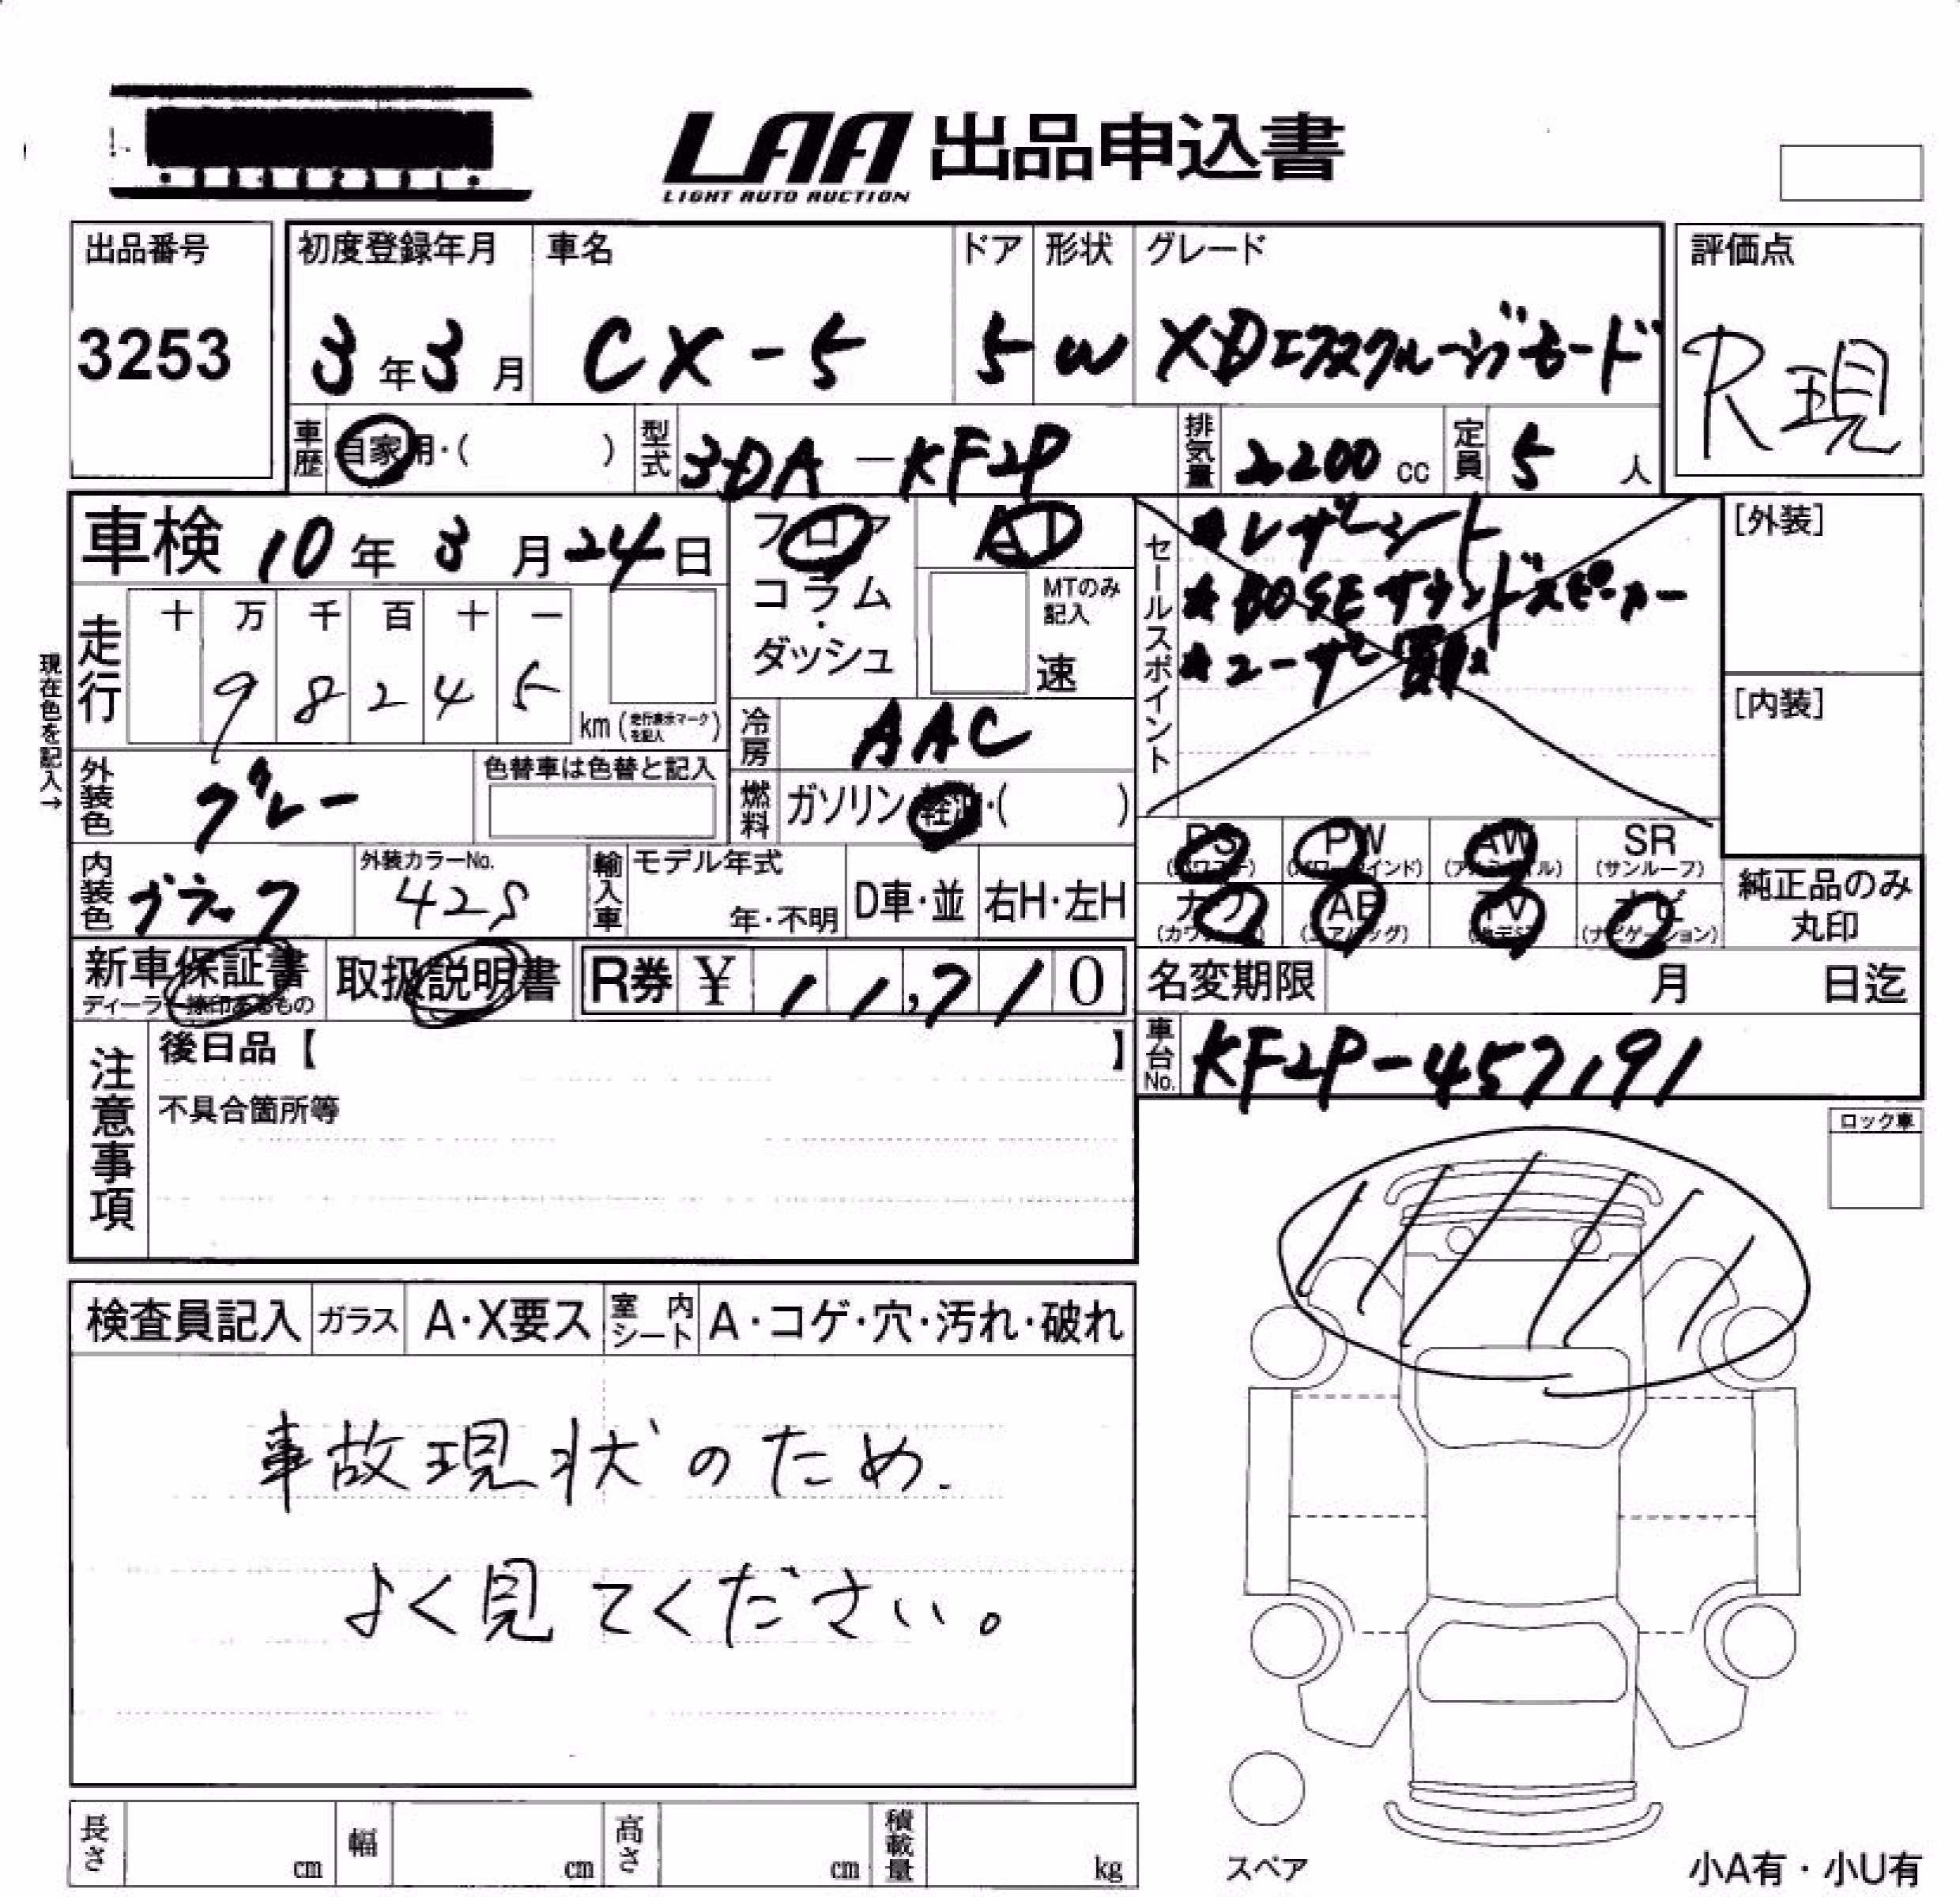 LAA 出品申込書
LIGHT AUTO AUCTION
出品番号
3253
初度登録年月
3年3月
車名
CX-5
ドア
5
形状
W
グレード
XDエクスクルーシブモード
評価点
R現
車歴
自家用・( )
型式
3DA-KF2P
排気量
2200 cc
定員
5人
車検 10年3月24日
フロア
コラム
・
ダッシュ
AT
MTのみ
記入
速
セールスポイント
★レザーシート
★BOSEサウンドスピーカー
★ユーザー買取
[外装]
[内装]
現在色を記入→
走行
十 万 千 百 十 一
9 8 2 4 5
km(走行表示マークを記入)
冷房
AAC
外装色
グレー
色替車は色替と記入
燃料
ガソリン・軽油・( )
内装色
ブラック
外装カラーNo.
42S
輸入車
モデル年式
年・不明
D車・並
右H・左H
PS
(パワステ)
PW
(パワーウインド)
AW
(アルミホイル)
SR
(サンルーフ)
カワ
AB
(エアバッグ)
TV
(地デジ)
ナビ
(ナビゲーション)
純正品のみ
丸印
新車保証書
ディーラー捺印あるもの
取扱説明書
R券 ¥ 11,710
名変期限 月 日迄
車台No.
KF2P-457191
注意事項
後日品【 】
不具合箇所等
ロック車
検査員記入
ガラス
A・X要ス
室内シート
A・コゲ・穴・汚れ・破れ
事故現状のため.
よく見てください。
長さ cm
幅 cm
高さ cm
積載量 kg
スペア
小A有・小U有